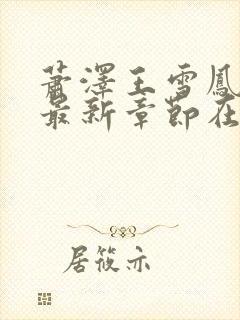 萧泽王雪凤
最新章节在
居筱亦